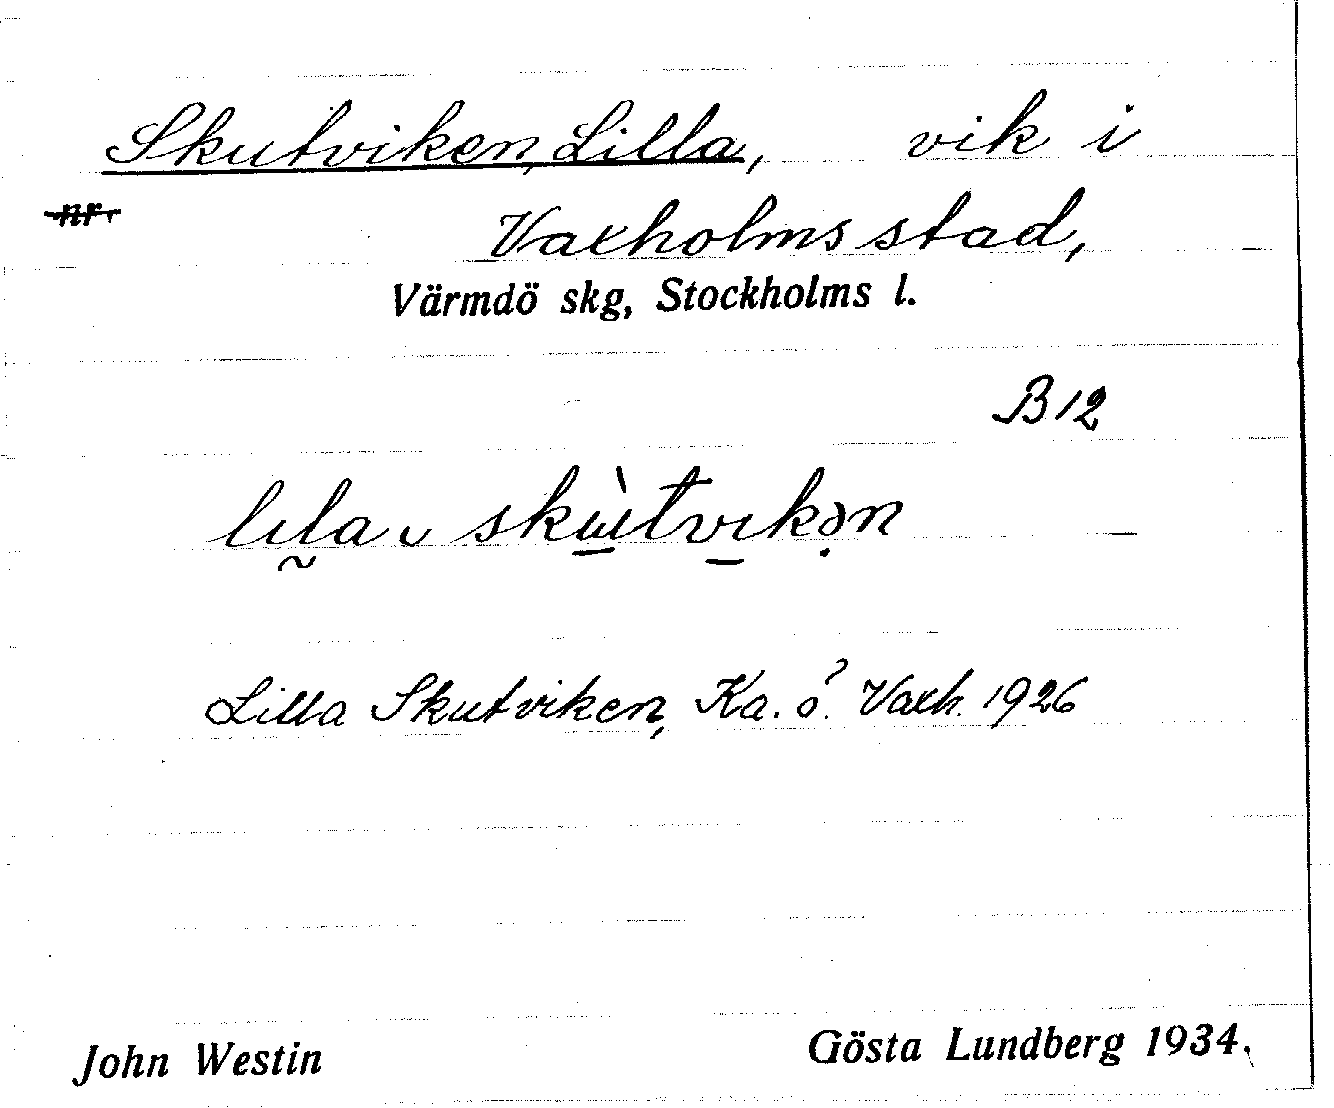 Skutviken, Lilla, vik i
nr.
Vaxholms stad,
Värmdö skg, Stockholms l.
B 12
Lilla Skutviken, Ka. ö? Vaxh. 1926
John Westin Gösta Lundberg 1934.